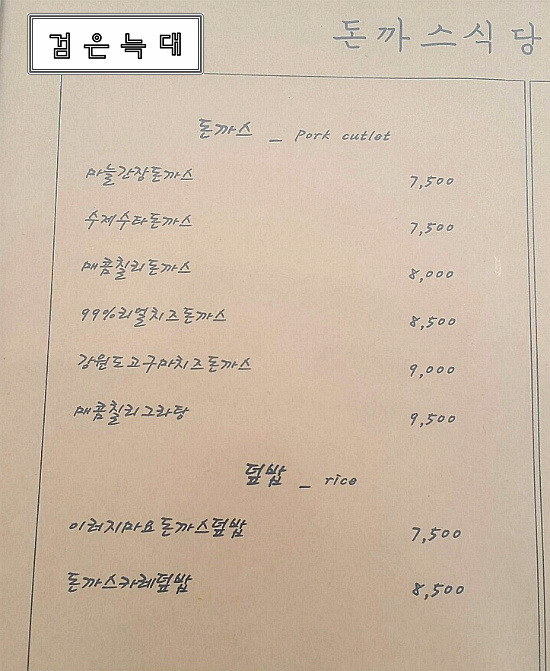 검은늑대
돈까스식당
돈까스 _ Pork cutlet
마늘간장돈까스 7,500
수제수타돈까스 7,500
매콤칠리돈까스 8,000
99%리얼치즈돈까스 8,500
강원도고구마치즈돈까스 9,000
매콤칠리그라탕 9,500
덮밥 _ rice
이러지마요돈까스덮밥 7,500
돈까스카레덮밥 8,500